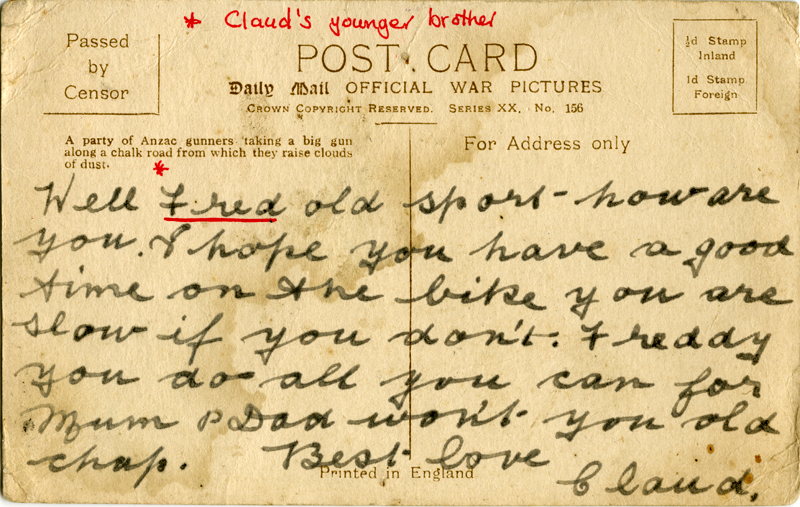 * Claud's younger brother
Passed
by
Censor
POST CARD
Daily Mail OFFICIAL WAR PICTURES
CROWN COPYRIGHT RESERVED. SERIES XX. No. 156
½d Stamp
Inland
1d Stamp
Foreign
A party of Anzac gunners taking a big gun
along a chalk road from which they raise clouds
of dust.
*
For Address only
Well Fred old sport - how are
you. I hope you have a good
time on the bike you are
slow if you don't. Freddy
you do all you can for
Mum & Dad won't you old
chap. Best love
Printed in England
Claud.